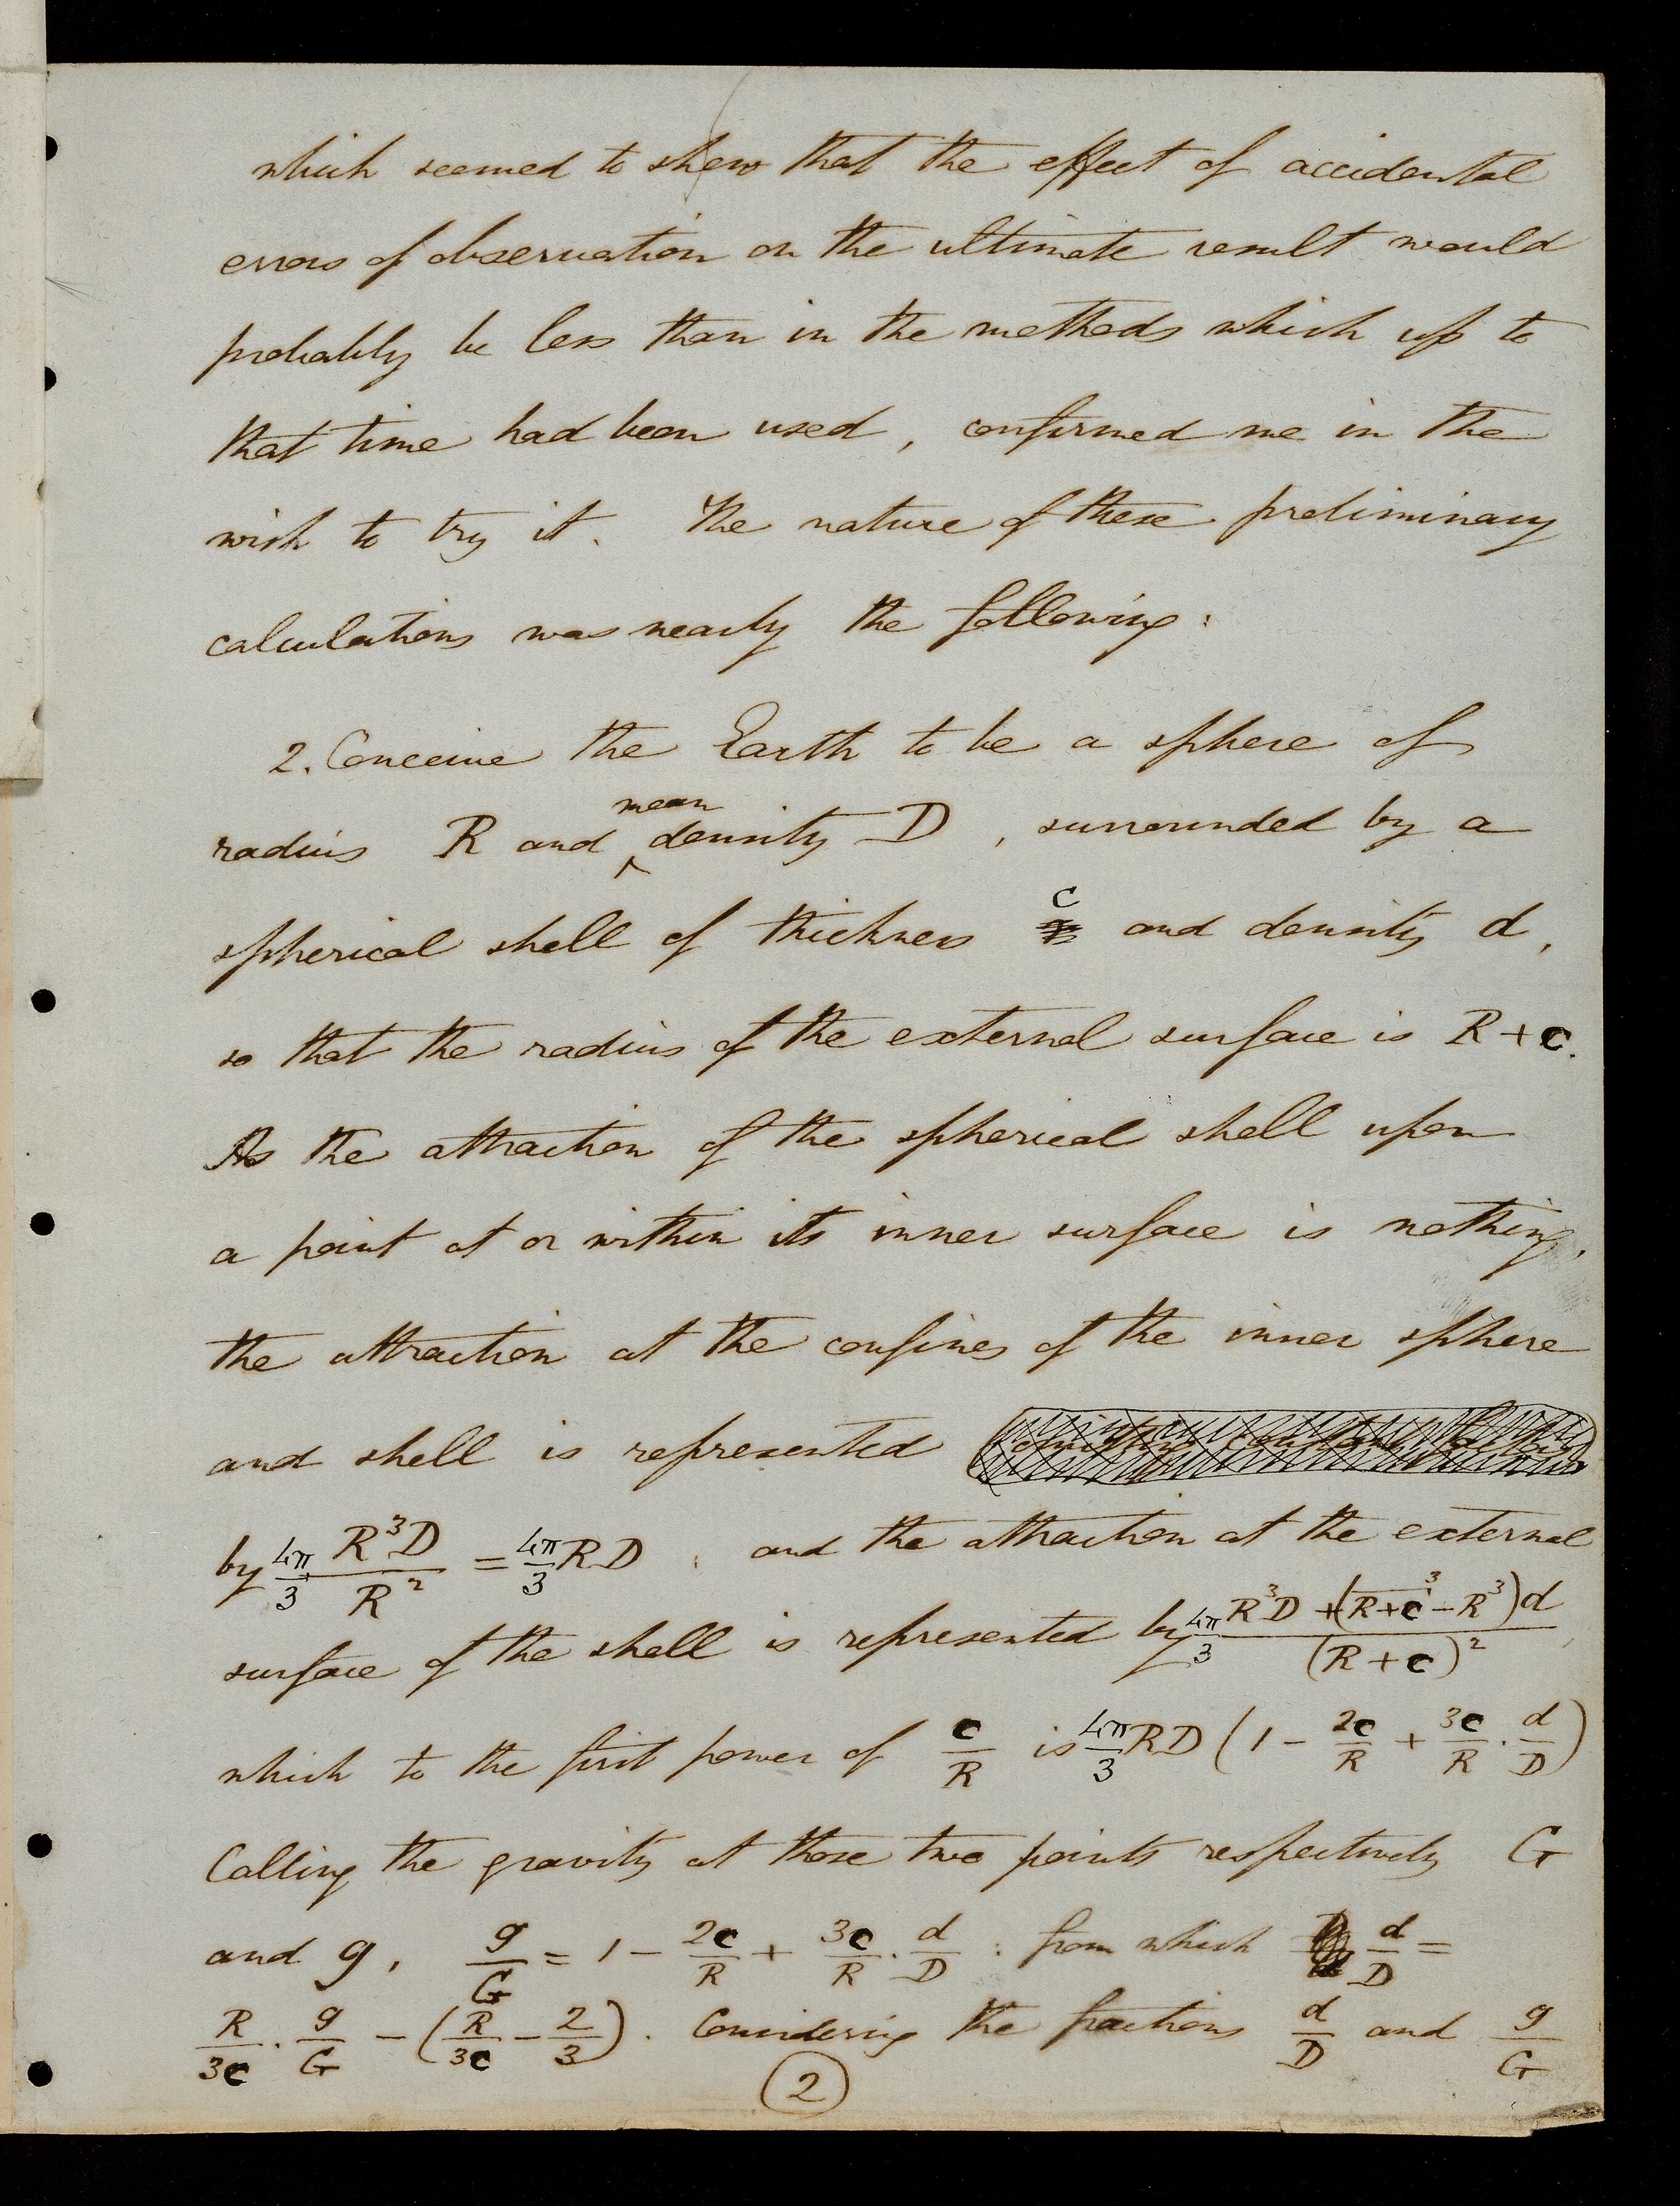 which seemed to shew that the effect of accidental
errors of observation on the ultimate result would
probably be less than in the methods which up to
that time had been used, confirmed me in the
wish to try it. The nature of these preliminary
calculations was nearly the following:
2. Conceive the Earth to be a sphere of
radius R and mean density D, surrounded by a
spherical shell of thickness c and density d,
so that the radius of the external surface is R+c.
As the attraction of the spherical shell upon
a point at or within its inner surface is nothing,
the attraction at the confines of the inner sphere
and shell is represented
by 4π/3 R³D/R² = 4π/3 RD : and the attraction at the external
surface of the shell is represented by 4π/3 (R³D + (R+c³ - R³)d)/(R+c)²,
which to the first power of c/R is 4π/3 RD (1 - 2c/R + 3c/R . d/D)
Calling the gravity at those two points respectively G
and g, g/G = 1 - 2c/R + 3c/R . d/D : from which d/D =
R/3c . g/G - (R/3c - 2/3). Considering the fractions d/D and g/G
2